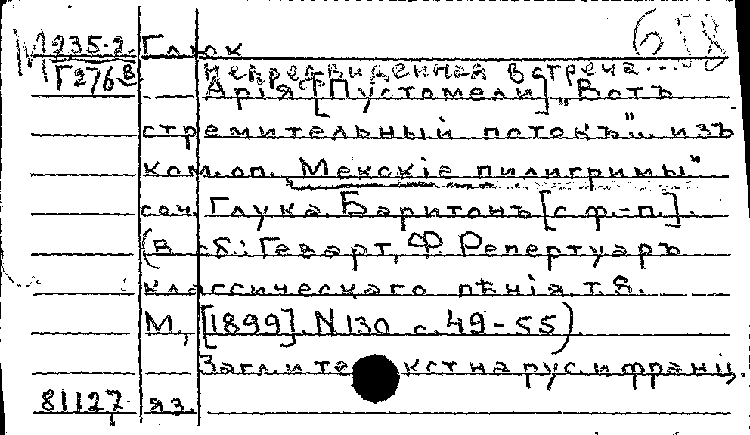 М 235.2. Глюк 658
Г276в непредвиденная встреча...
Арія [Пустомели] „Вотъ
стремительный потокъ"... изъ
ком. оп. „Мекскіе пилигримы"
соч. Глука. Баритонъ [с ф.-п.].
(В сб.: Геварт, Ф. Репертуаръ
классическаго пѣнія т. 8.
М., [1899]. N 130 с. 49-55).
Загл. и текст на рус. и франц.
81127 яз.